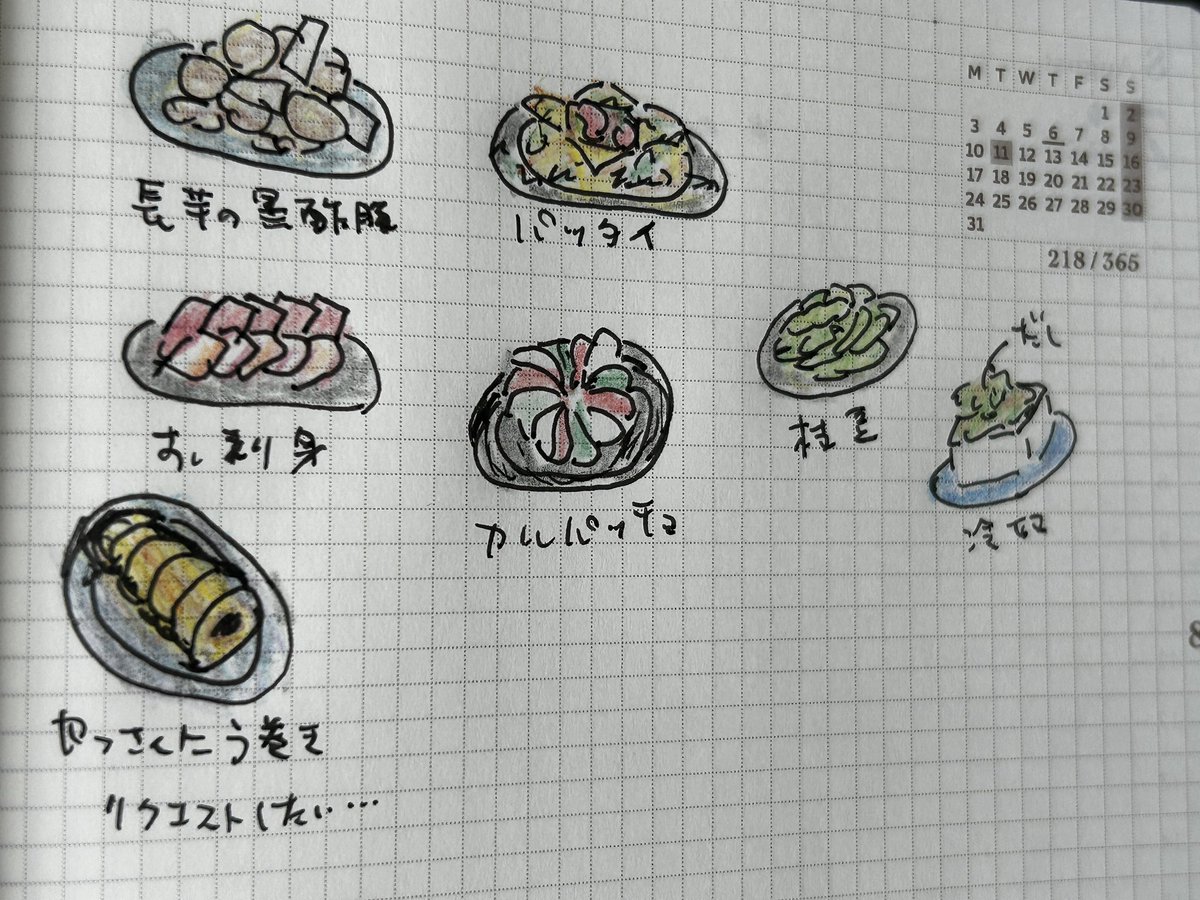 M T W T F S S
1 2
3 4 5 6 7 8 9
10 11 12 13 14 15 16
17 18 19 20 21 22 23
24 25 26 27 28 29 30
31
218/365
長芋の黒酢豚
パッタイ
おい刺り身
カルパッチョ
だし
冷奴
う巻き
リクエストしたい…
8